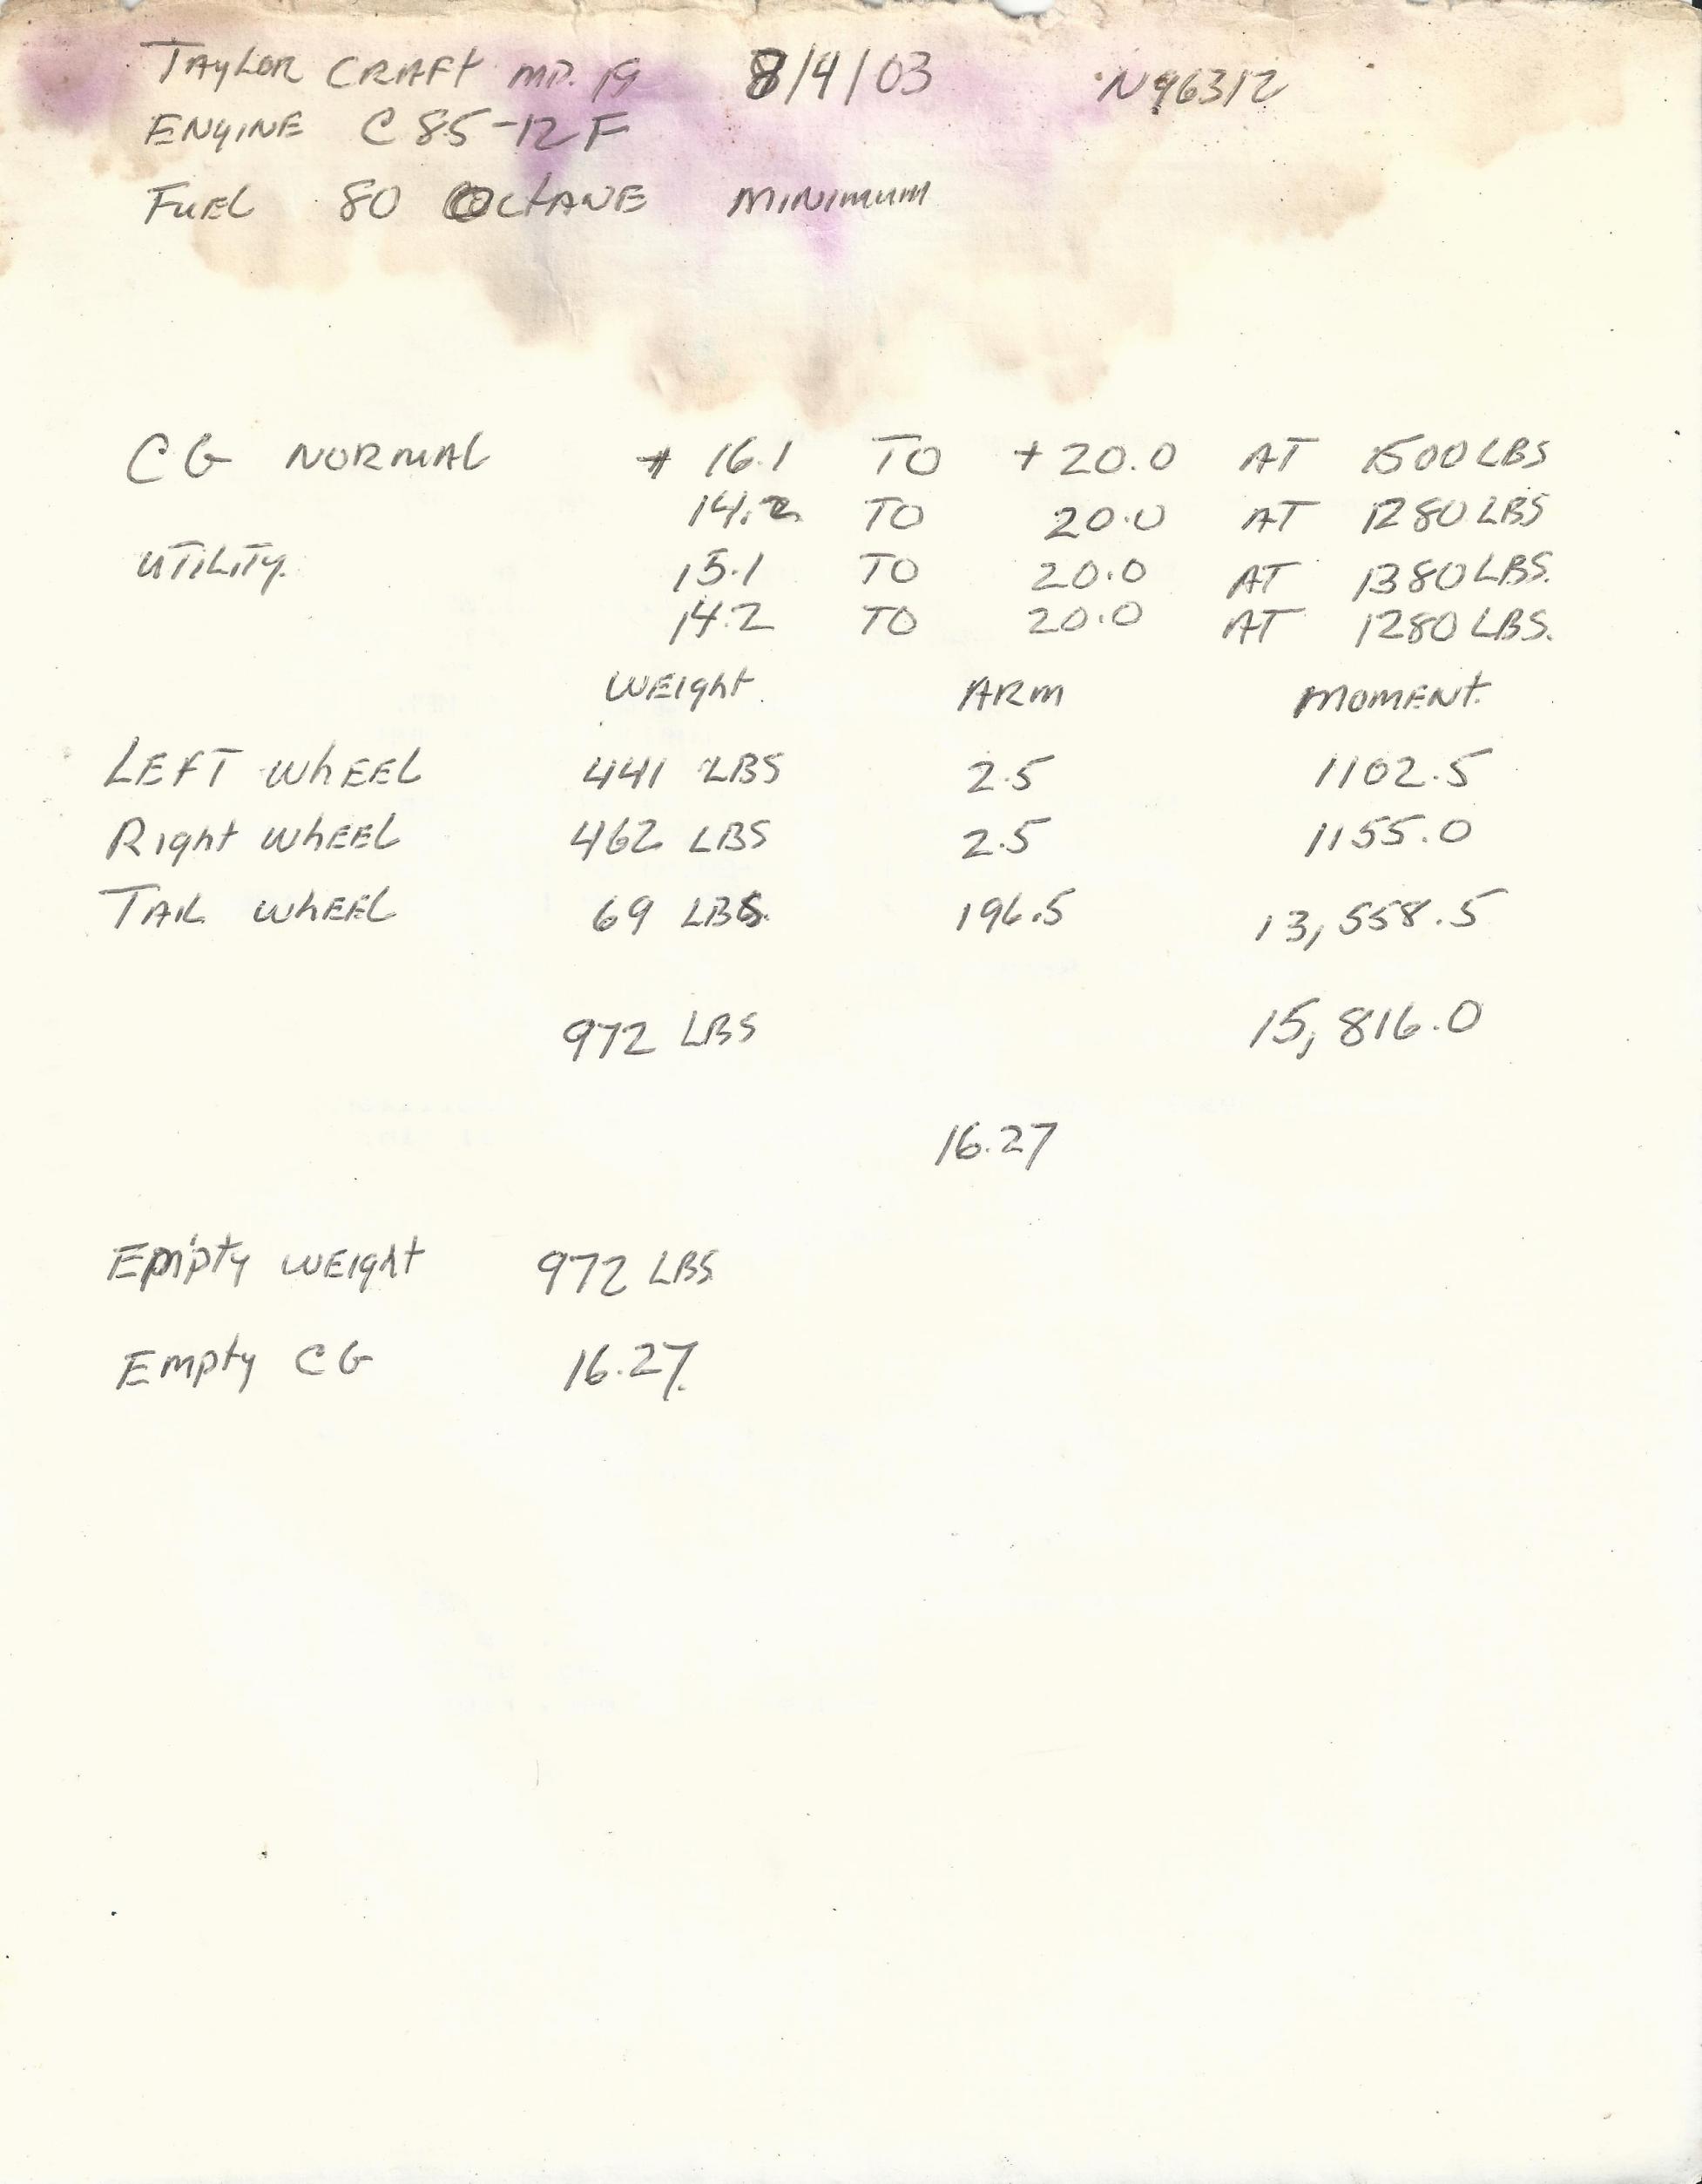 TAYLOR CRAFT MD. 19 8/4/03 N96312
ENGINE C85-12F
FUEL 80 OCTANE MINIMUM
CG NORMAL + 16.1 TO + 20.0 AT 1500 LBS
14.2 TO 20.0 AT 1280 LBS
UTILITY. 15.1 TO 20.0 AT 1380 LBS.
14.2 TO 20.0 AT 1280 LBS.
WEIGHT. ARM MOMENT.
LEFT WHEEL 441 LBS 2.5 1102.5
RIGHT WHEEL 462 LBS 2.5 1155.0
TAIL WHEEL 69 LBS. 196.5 13,558.5
972 LBS 15,816.0
16.27
EMPTY WEIGHT 972 LBS
EMPTY CG 16.27.